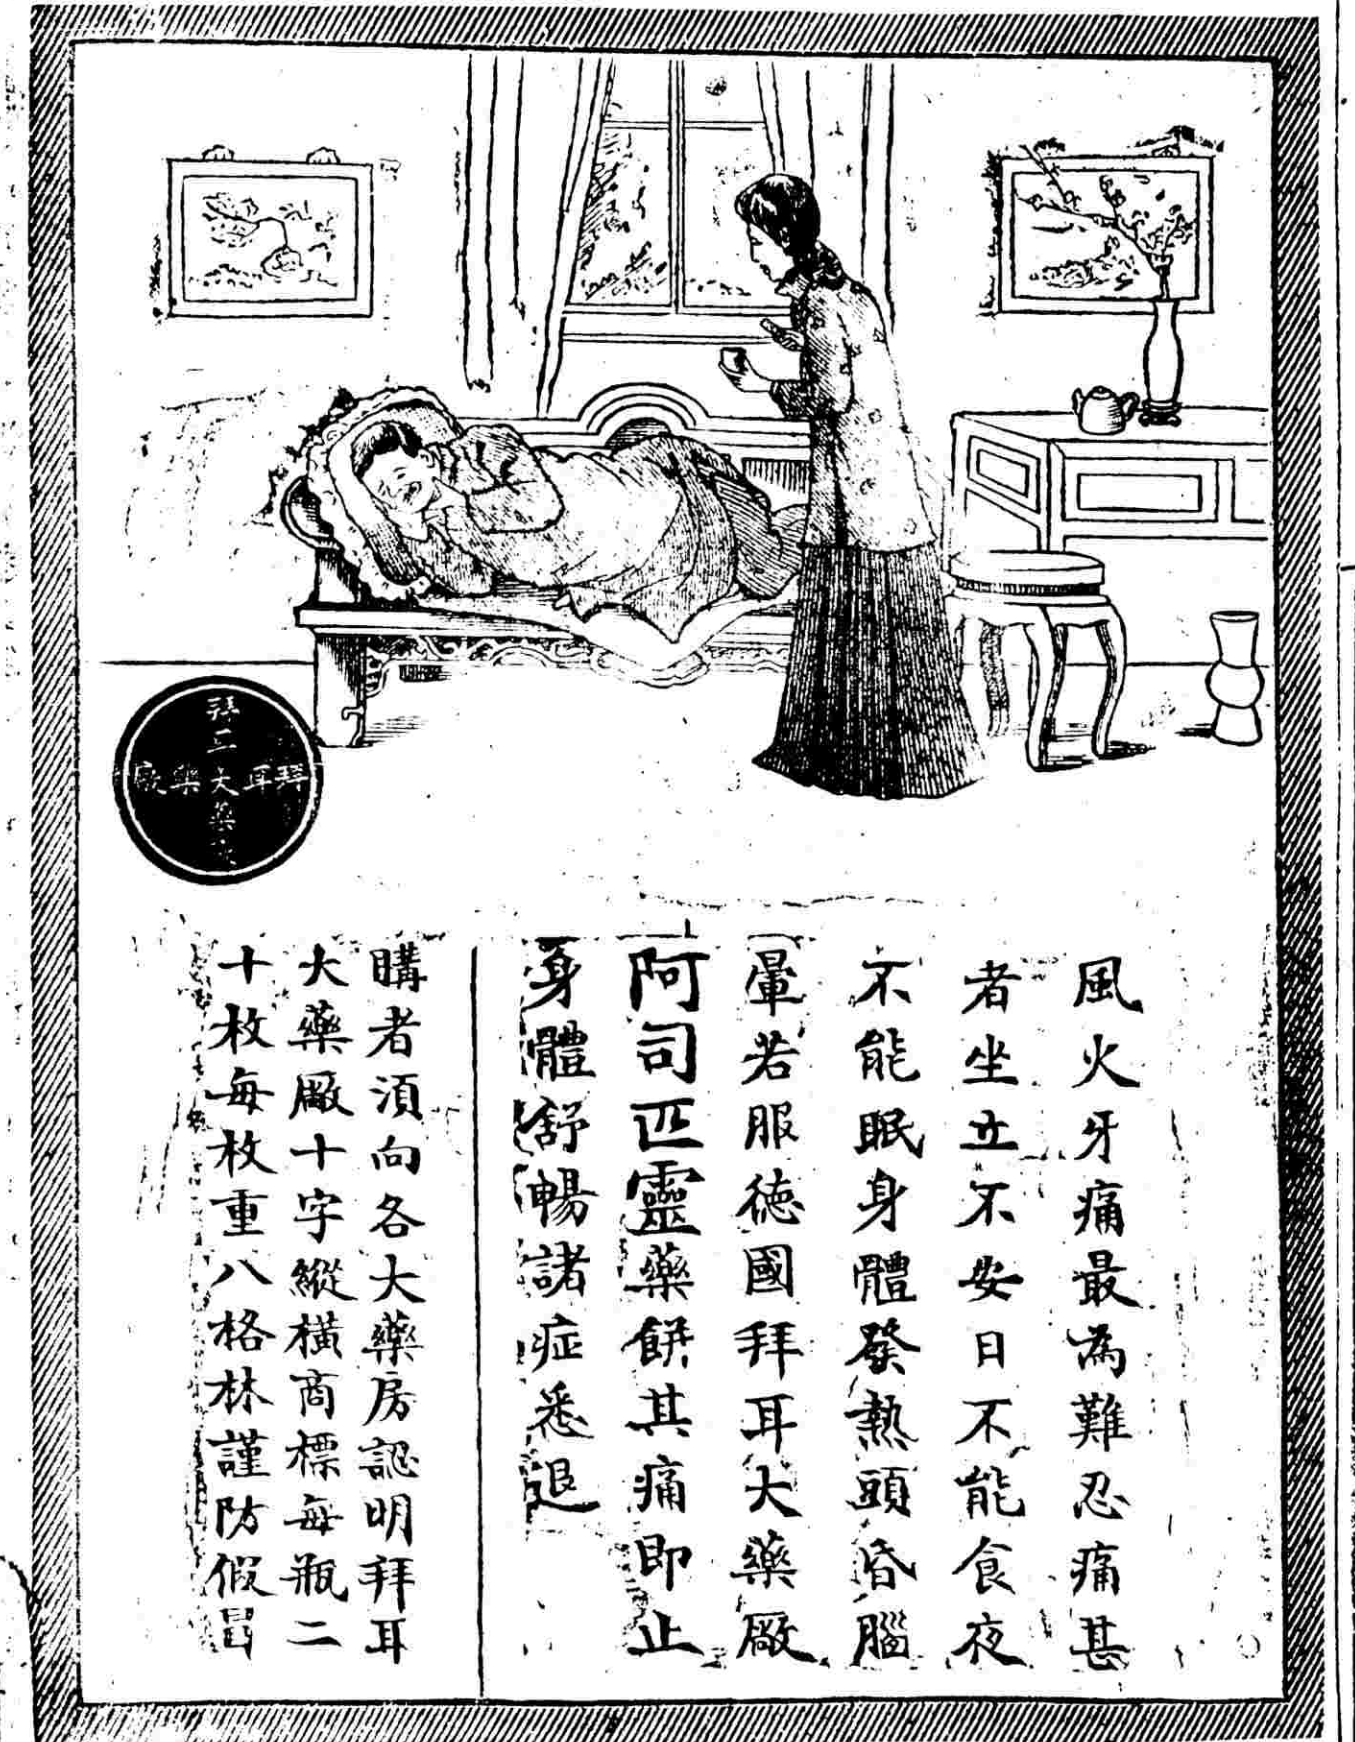 風火牙痛最為難忍痛甚
者坐立不安日不能食夜
不能眠身體發熱頭昏腦
暈若服德國拜耳大藥廠
阿司匹靈藥餅其痛即止
身體舒暢諸症悉退
購者須向各大藥房認明拜耳
大藥廠十字縱橫商標每瓶二
十枚每枚重八格林謹防假冒
拜耳大藥廠